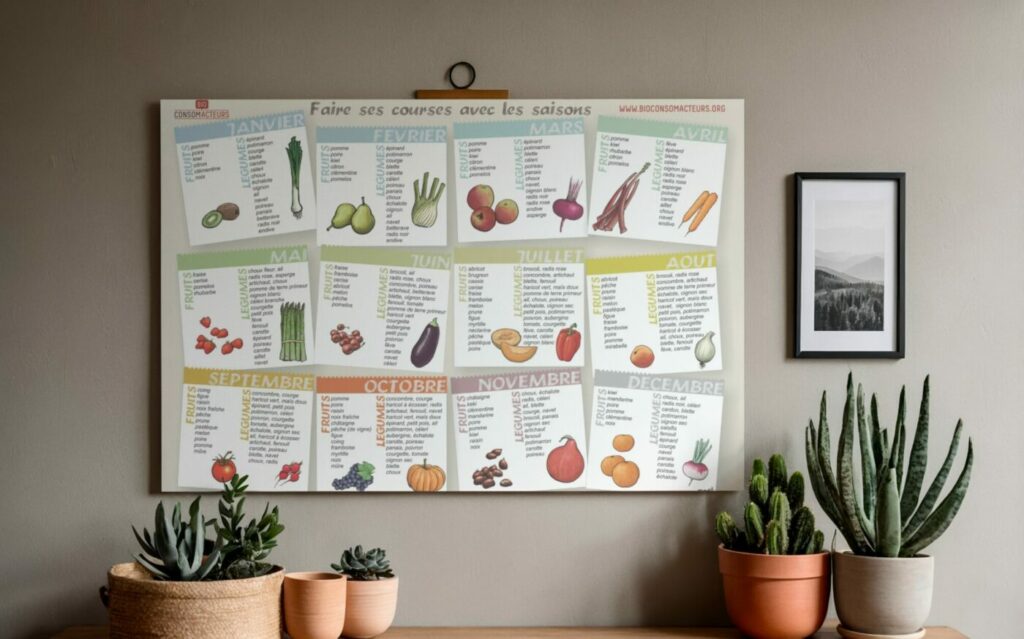 BIO
CONSOMACTEURS
Faire ses courses avec les saisons
WWW.BIOCONSOMACTEURS.ORG
JANVIER
FRUITS
pomme
poire
kiwi
citron
clémentine
noix
LÉGUMES
épinard
potimarron
courge
blette
carotte
céleri
choux
échalote
oignon
ail
navet
poireau
panais
betterave
radis noir
endive
FEVRIER
FRUITS
pomme
poire
kiwi
citron
clémentine
pomelos
LÉGUMES
épinard
potimarron
courge
blette
carotte
céleri
poireau
panais
choux
échalote
oignon
ail
navet
betterave
radis noir
endive
MARS
FRUITS
pomme
poire
kiwi
citron
clémentine
pomelos
LÉGUMES
épinard
potimarron
blette
céleri
poireau
panais
choux
navet
oignon
radis noir
radis rose
endive
asperge
AVRIL
FRUITS
pomme
kiwi
rhubarbe
citron
pomelos
LÉGUMES
fève
épinard
blette
céleri
oignon blanc
radis noir
radis rose
asperge
poireau
carotte
aillet
choux
navet
endive
MAI
FRUITS
fraise
cerise
pomelos
rhubarbe
LÉGUMES
choux fleur, ail
radis rose, asperge
artichaut, choux
pomme de terre primeur
oignon blanc
céleri branche
courgette
petit pois
fève
fenouil
carotte
blette
épinard
poireau
aillet
navet
JUIN
FRUITS
fraise
framboise
cerise
abricot
melon
pêche
pomelos
LÉGUMES
brocoli, ail
radis rose, choux
concombre, poireau
artichaut, betterave
blette, oignon blanc
fenouil, tomate
pomme de terre primeur
haricot vert
courgette
aubergine
petit pois
poivron
fève
carotte
navet
céleri
JUILLET
FRUITS
abricot
brugnon
cassis
cerise
fraise
framboise
melon
prune
figue
myrtille
nectarine
pêche
pastèque
poire
LÉGUMES
brocoli, radis rose
concombre, artichaut
blette, fenouil
haricot vert, maïs doux
pomme de terre primeur
ail, choux, poireau
échalote, oignon sec
petit pois, céleri
potimarron, courgette
poivron, aubergine
tomate, courgette
fève, carotte
navet, épinard
oignon blanc
AOUT
FRUITS
abricot
pêche
prune
raisin
melon
pastèque
figue
fraise
framboise
poire
pomme
mirabelle
LÉGUMES
brocoli, radis rose
concombre, artichaut
pomme de terre primeur
haricot vert, maïs doux
navet, oignon blanc
échalote, oignon sec
petit pois, céleri
potimarron
poivron, aubergine
tomate, courgette
haricot à écosser
ail, choux, poireau
blette, fenouil
fève, carotte
épinard
SEPTEMBRE
FRUITS
coing
figue
raisin
noix fraîche
pêche
prune
pastèque
melon
poire
pomme
mûre
LÉGUMES
concombre, courge
haricot vert, maïs doux
brocoli, petit pois
épinard, fenouil
potimarron
poivron, aubergine
tomate, courgette
échalote, céleri
artichaut
oignon sec
ail, haricot à écosser
carotte, poireau
blette, navet
choux, radis
OCTOBRE
FRUITS
pomme
poire
raisin
noix fraîche
châtaigne
pêche (de vigne)
figue
coing
framboise
myrtille
noix
mûre
LÉGUMES
concombre, courge
haricot à écosser, radis
artichaut, fenouil, navet
haricot vert, brocoli
épinard, petit pois, ail
potimarron, céleri
aubergine, échalote
carotte, poireau
panais, poivron
courgette, tomate
oignon sec
blette
choux
NOVEMBRE
FRUITS
châtaigne
kaki
clémentine
mandarine
poire
pomme
kiwi
raisin
noix
LÉGUMES
choux, échalote
radis, céleri
ail, blette
courge, navet
brocoli, panais
oignon sec
artichaut
fenouil
potimarron
carotte
épinard
poireau
DECEMBRE
FRUITS
kiwi
mandarine
poire
pomme
clémentine
noix
LÉGUMES
choux, ail
radis noir, céleri
carotte, endive
potimarron
oignon sec
courge
blette
fenouil
épinard
navet
panais
poireau
échalote